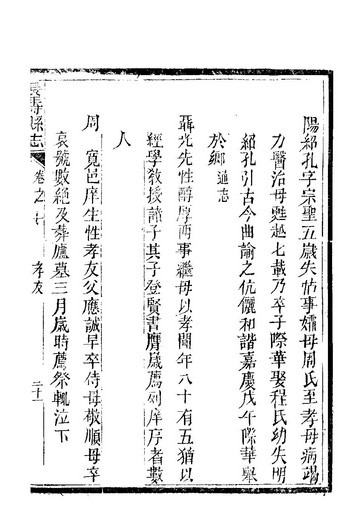 陽紹孔字宗聖五歲失怙事孀母周氏至孝母病竭
力醫治母甦越七載乃卒子際華娶程氏幼失明
紹孔引古今曲諭之伉儷和諧嘉慶戊午際華舉
於鄉通志
聶光先性醇厚兩事繼母以孝聞年八十有五猶以
經學教授讀子其子登賢書膺歲薦列庠序者數
人
周寬邑庠生性孝友父應誠早卒侍母敬順母卒
哀號數絕及葬廬墓三月歲時薦祭輒泣下
縣志
卷之七
孝友
二十一